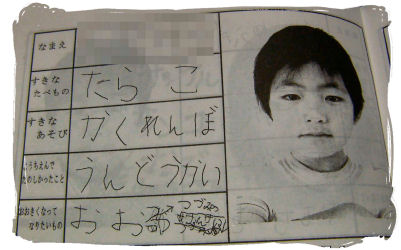 なまえ
すきな
たべもの
たらこ
すきな
あそび
かくれんぼ
ようちえんで
たのしかったこと
うんどうかい
おおきくなって
なりたいもの